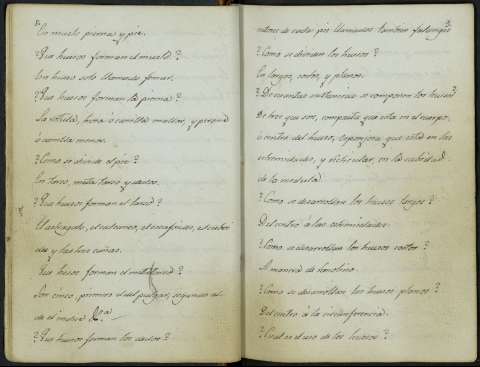 En muslo pierna, y pie.
? Que huesos forman el muslo ?
Un hueso solo llamado femur.
? Que huesos forman la pierna ?
La rotula, tivia ó canilla mallor, y peroné
ó canilla menor.
? Como se divide el pie ?
En tarso, meta tarso y dedos.
? Que huesos forman el tarso ?
El astragalo, el calcaneo, el escafoides, el cuboi
des y las tres cuñas.
? Que huesos forman el metatarso ?
Por cinco primero el del pulgar, segundo el
del indice &.a
? Que huesos forman los dedos ?
3.
de cada pie llamados tambien falanges
? Como se dividen los huesos ?
En largos, cortos, y planos.
? De cuantas sustancias se componen los huesos ?
De tres que son, compacta que esta en el cuerpo,
ó centro del hueso, esponjosa que está en las
estremidades, y reticular, en la cabidad
de la medula.
? Como se desarrollan los huesos largos ?
Del centro á las estremidades.
? Como se desarrollan los huesos cortos ?
A manera de
? Como se desarrollan los huesos planos ?
Del centro á la circunferencia.
? Cual es el uso de los huesos ?